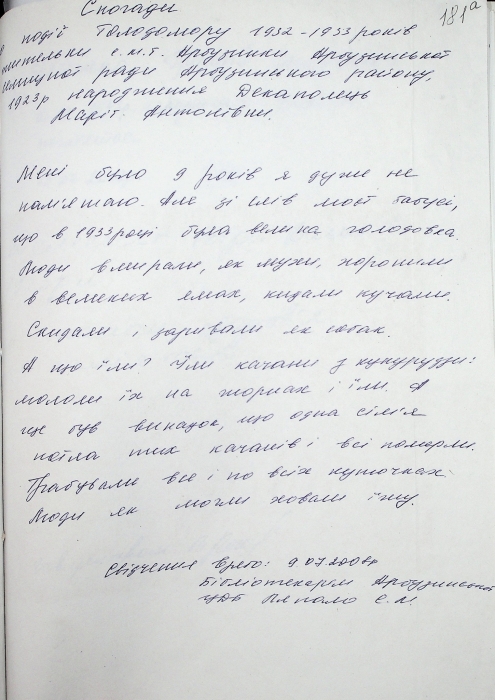 181а
Спогади
події Голодомору 1932-1933 років
жительки с.м.т. Арбузинки Арбузинської
селищної ради Арбузинського району,
1923р народження Декаполець
Марії Антонівни.
Мені було 9 років я дуже не
пам'ятаю. Але зі слів моєї бабусі,
що в 1933 році була велика голодовка.
Люди вмирали, як мухи, хоронили
в великих ямах, кидали кучами.
Скидали і заривали як собак.
А що їли? Їли качани з кукурудзи:
мололи їх на жорнах і їли. А
ще був випадок, що одна сім'я
поїла тих качанів і всі померли.
Грабували все і по всіх куточках.
Люди як могли ховали їжу.
Свідчення взято: 9 07.2008р
Бібліотекарем Арбузинської
ЦРБ Є.М.